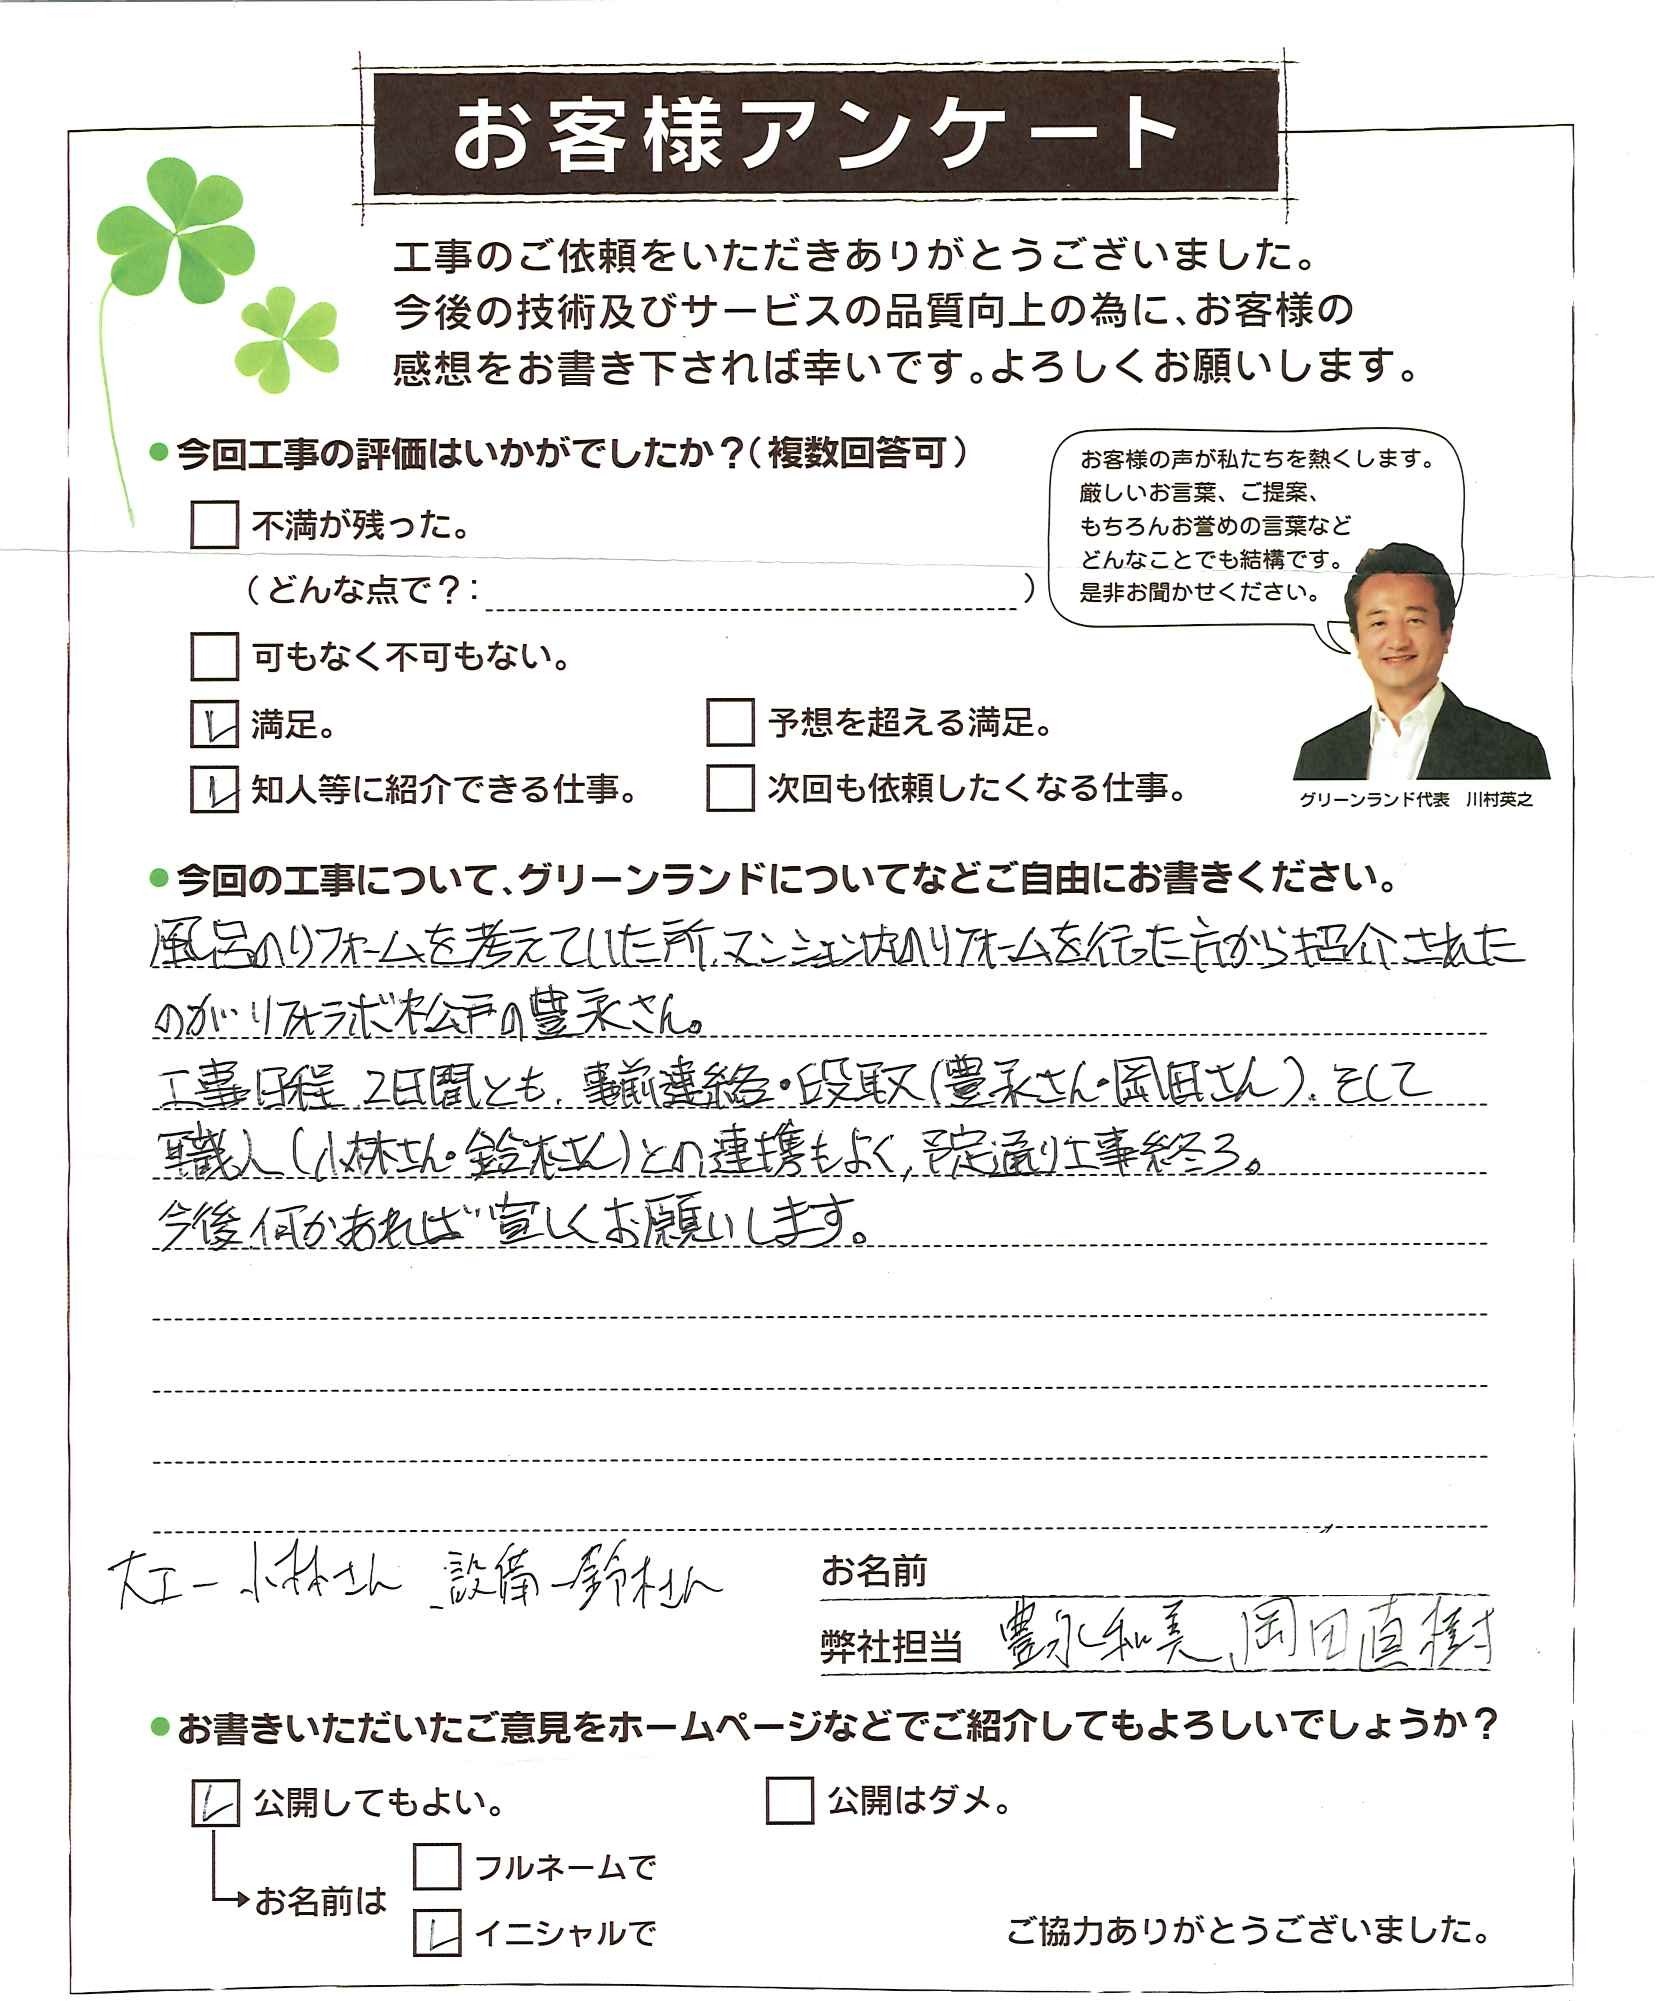 お客様アンケート
工事のご依頼をいただきありがとうございました。
今後の技術及びサービスの品質向上の為に、お客様の
感想をお書き下されれば幸いです。よろしくお願いします。
●今回工事の評価はいかがでしたか？（複数回答可）
不満が残った。
（どんな点で？：　）
可もなく不可もない。
満足。
予想を超える満足。
知人等に紹介できる仕事。
次回も依頼したくなる仕事。
お客様の声が私たちを熱くします。
厳しいお言葉、ご提案、
もちろんお誉めの言葉など
どんなことでも結構です。
是非お聞かせください。
グリーンランド代表　川村英之
●今回の工事について、グリーンランドについてなどご自由にお書きください。
風呂のリフォームを考えていた所、マンション内のリフォームを行った方から紹介された
のがリフォラボ松戸の豊永さん。
工事日程、2日間とも、事前連絡・段取（豊永さん・岡田さん）、そして
職人（小林さん・鈴木さん）との連携もよく、予定通り工事終了。
今後何かあれば宜しくお願いします。
大工ー小林さん　設備ー鈴木さん
お名前
弊社担当　豊永和美、岡田直樹
●お書きいただいたご意見をホームページなどでご紹介してもよろしいでしょうか？
公開してもよい。
公開はダメ。
お名前は
フルネームで
イニシャルで
ご協力ありがとうございました。